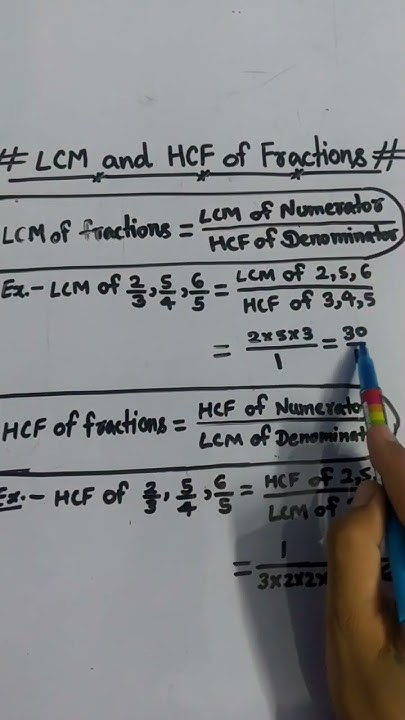 # LCM and HCF of Fractions #
LCM of fractions = LCM of Numerator / HCF of Denominator
Ex.- LCM of 2/3, 5/4, 6/5 = LCM of 2, 5, 6 / HCF of 3, 4, 5
= 2×5×3 / 1 = 30
HCF of fractions = HCF of Numerato / LCM of Denominat
Ex.- HCF of 2/3, 5/4, 6/5 = HCF of 2, 5, / LCM of
= 1 / 3×2×2×